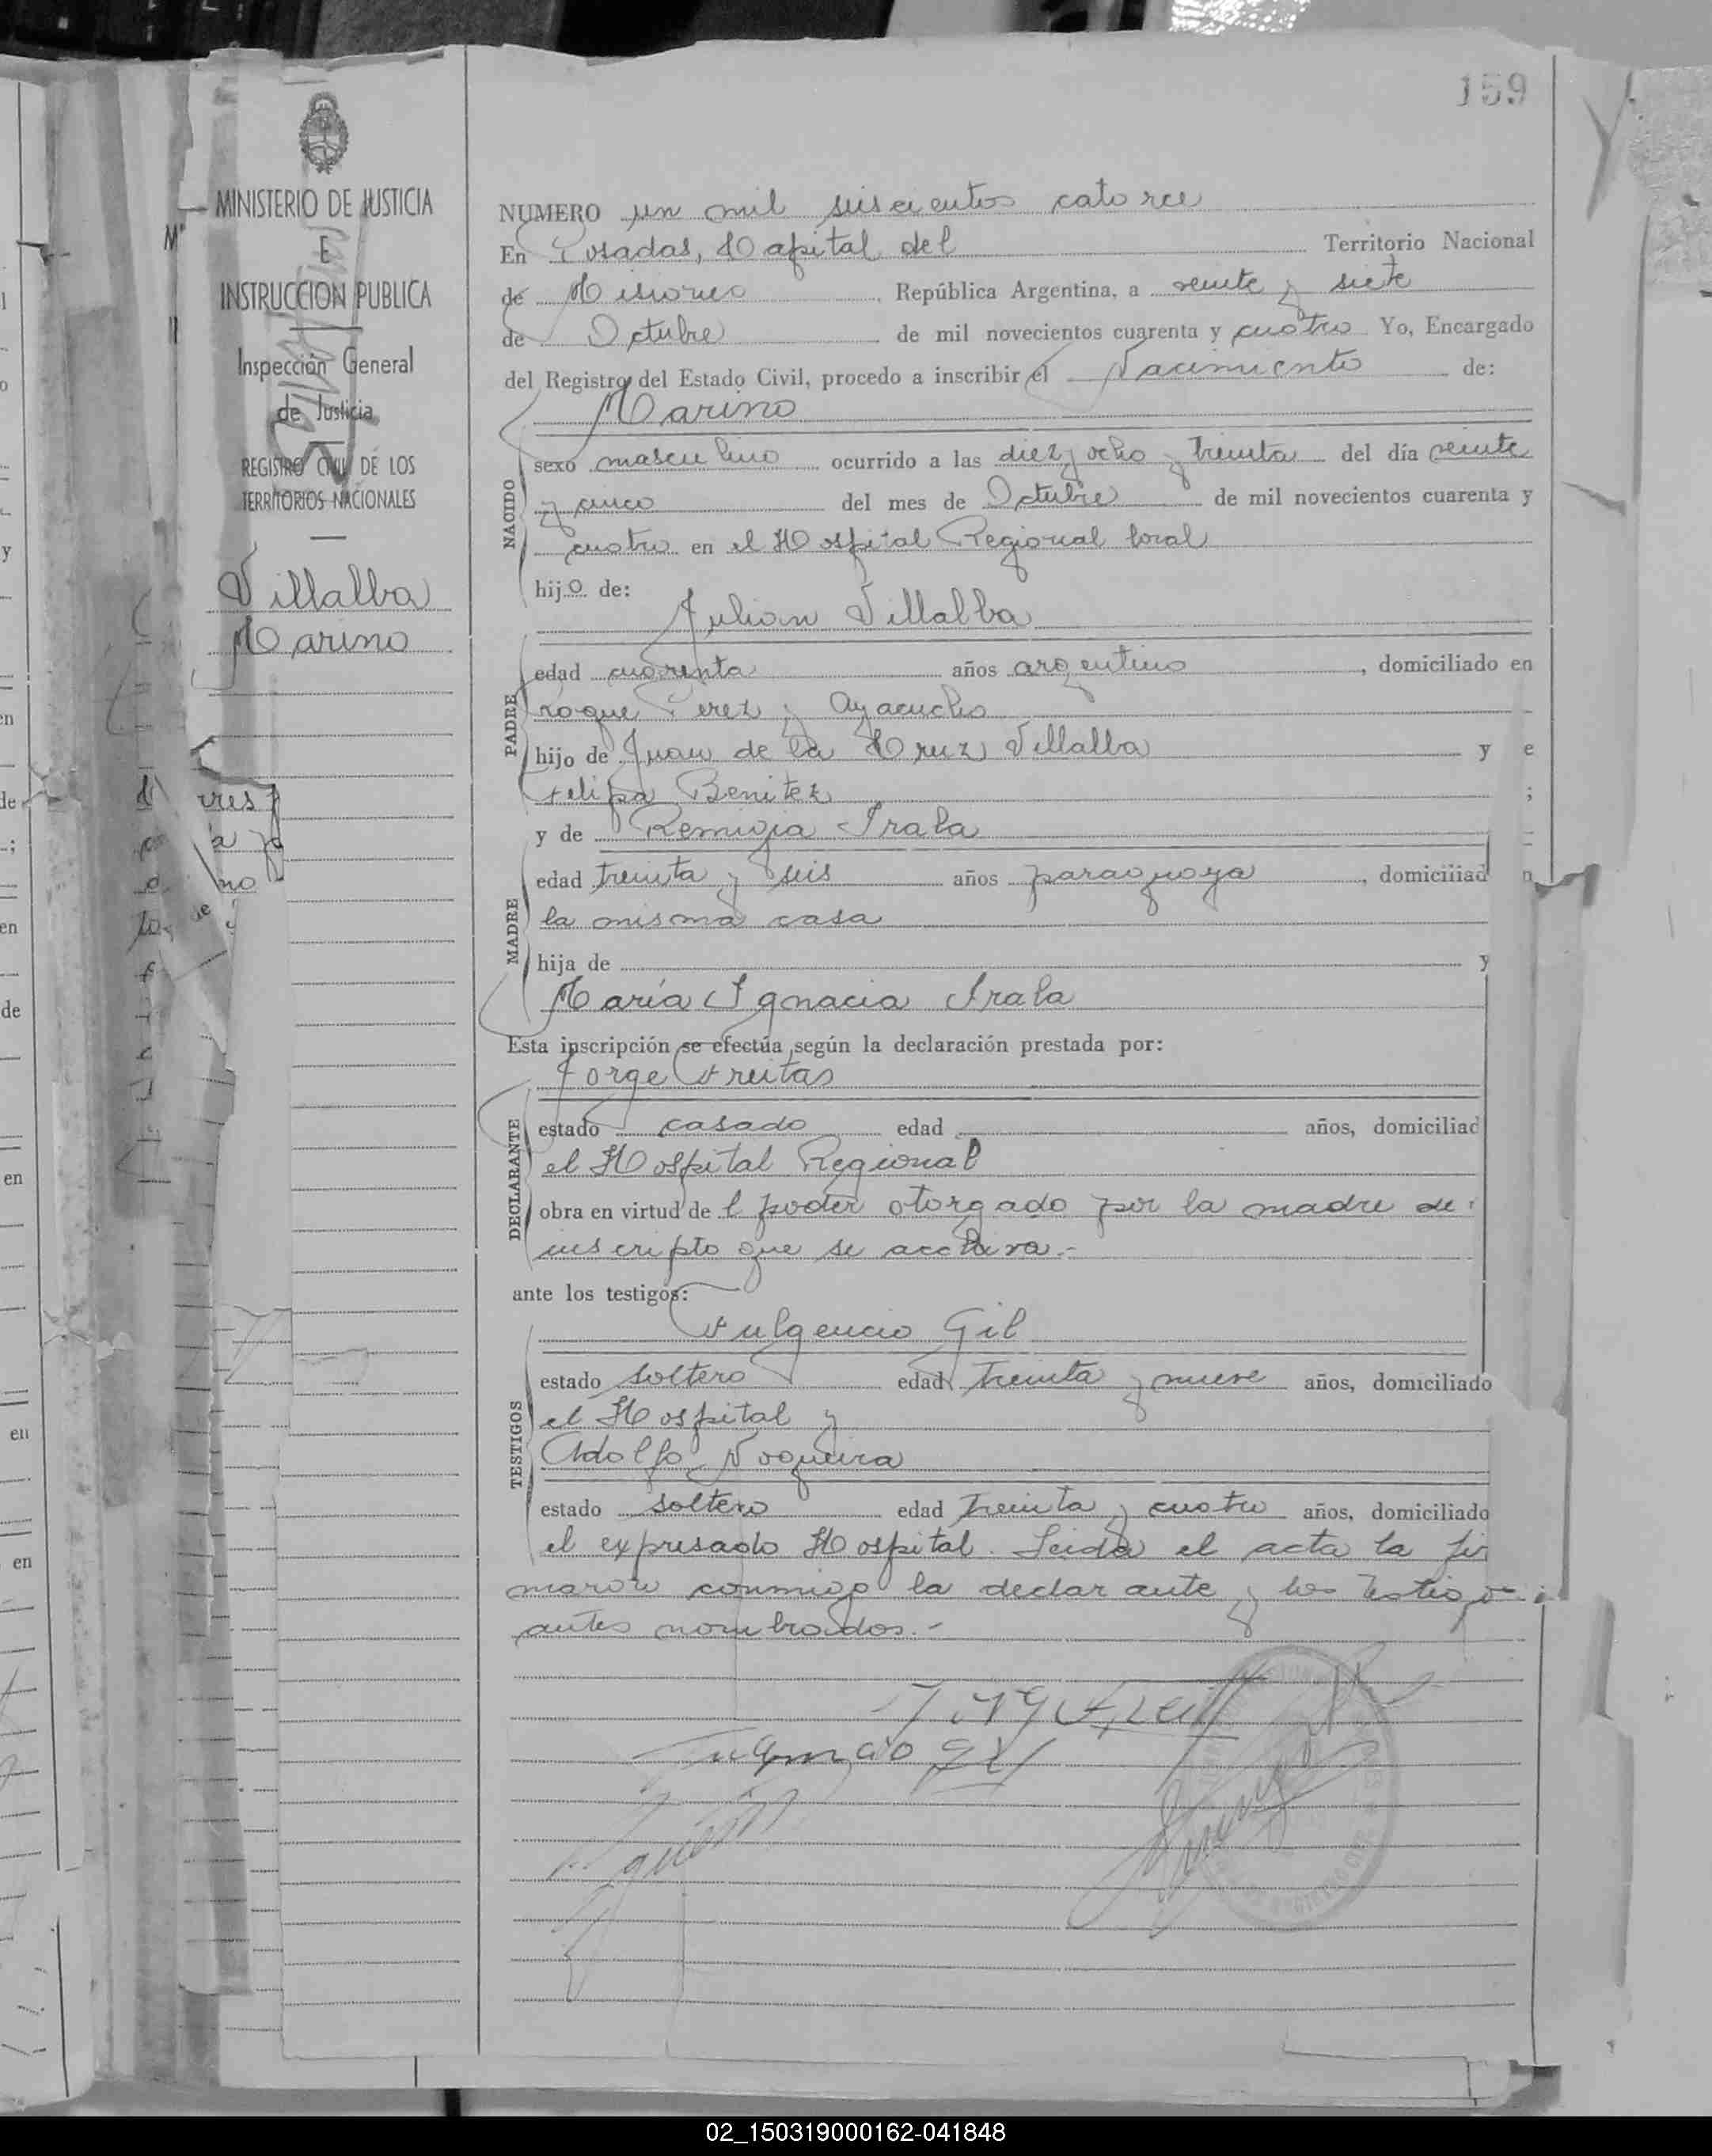 159
MINISTERIO DE JUSTICIA
E
INSTRUCCION PUBLICA
Inspección General
de Justicia
REGISTRO CIVIL DE LOS
TERRITORIOS NACIONALES
Villalba
Marino
NUMERO un mil seiscientos catorce
En Posadas, Capital del Territorio Nacional
de Misiones, República Argentina, a veinte y siete
de Octubre de mil novecientos cuarenta y cuatro Yo, Encargado
del Registro del Estado Civil, procedo a inscribir el Nacimiento de:
Marino
NACIDO
sexo masculino ocurrido a las diez y ocho y treinta del día veinte
y cinco del mes de Octubre de mil novecientos cuarenta y
cuatro en el Hospital Regional local
hijo de:
Julian Villalba
PADRE
edad cuarenta años argentino, domiciliado en
roque Perez y Ayacucho
hijo de Juan de la Cruz Villalba y
Felipa Benitez ;
y de Remigia Irala
MADRE
edad treinta y seis años paraguaya, domiciliad
la misma casa
hija de y
María Ignacia Irala
Esta inscripción se efectúa según la declaración prestada por:
Jorge Freitas
DECLARANTE
estado casado edad años, domiciliad
el Hospital Regional
obra en virtud de l poder otorgado por la madre de
inscripto que se archiva.-
ante los testigos:
Fulgencio Gil
TESTIGOS
estado soltero edad treinta y nueve años, domiciliado
el Hospital y
Adolfo Nogueira
estado soltero edad treinta y cuatro años, domiciliado
el expresado Hospital. Leida el acta la fir
maron conmigo la declarante y los testigos
antes nombrados.-
02_150319000162-041848